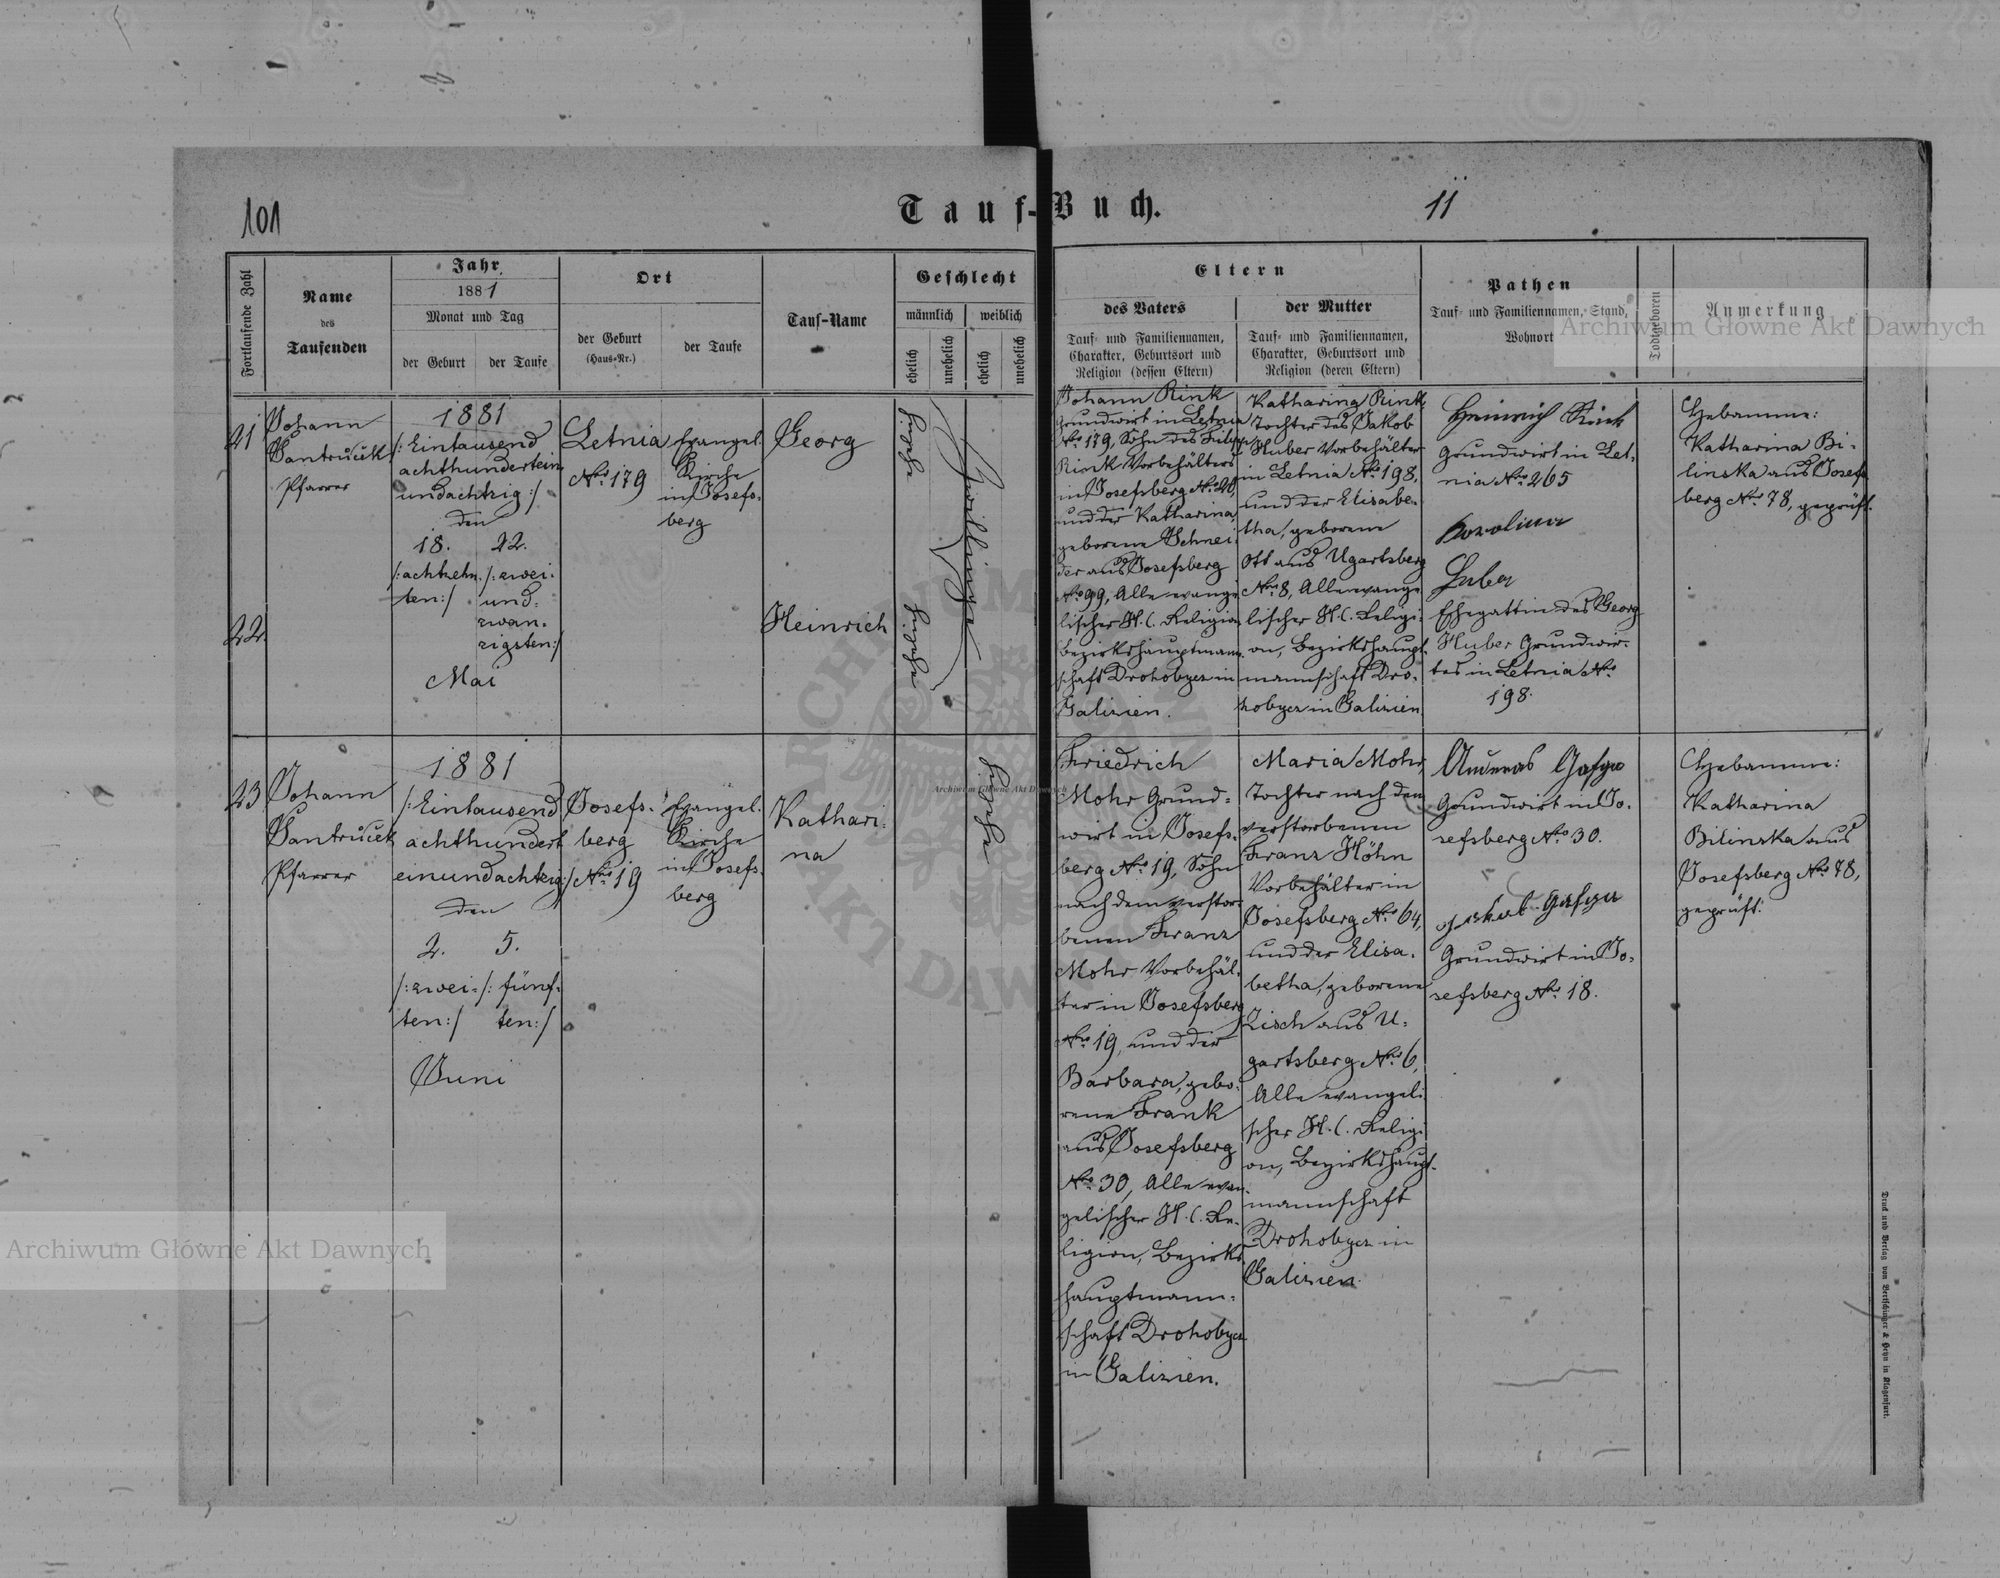 101
Tauf-Buch.
11
Fortlaufende Zahl
Name
des
Taufenden
Jahr
1881
Monat und Tag
der Geburt
der Taufe
Ort
der Geburt
(Haus-Nr.)
der Taufe
Tauf-Name
Geschlecht
männlich
weiblich
ehelich
unehelich
ehelich
unehelich
Eltern
des Vaters
Tauf- und Familiennamen,
Charakter, Geburtsort und
Religion (dessen Eltern)
der Mutter
Tauf- und Familiennamen,
Charakter, Geburtsort und
Religion (deren Eltern)
Pathen
Tauf- und Familiennamen, Stand,
Wohnort
Todtgeboren
Anmerkung
Archiwum Główne Akt Dawnych
21
Johann
Santruček
Pfarrer
1881
/:Eintausend
achthundertein
undachtzig:/
den
18. 22.
/:achtzehn- /:zwei-
ten:/ und-
zwan-
zigsten:/
Mai
Letnia
Nro 179
Evangel.
Kirche
in Josefs-
berg
Georg
Zwillinge
22
Heinrich
Johann Rink
Grundwirt in Letnia
Nro 179, Sohn des
Rink Vorbehälters
in Josefsberg Nro
und der Katharina,
geborene Schnei-
der aus Josefsberg
Nro 99, Alle evange
lischer H.C. Religion,
Bezirkshauptmann-
schaft Drohobycz in
Galizien.
Katharina Rink,
Tochter des Jakob
Huber Vorbehälter
in Letnia Nro 198,
und der Elisabe-
tha, geborene
Ott aus Ugartsberg
Nro 8, Alle evange
lischer H.C. Religi-
on, Bezirkshaupt-
mannschaft Dro-
hobycz in Galizien.
Heinrich Rink
Grundwirt in Let-
nia Nro 265
Karolina
Huber
Ehegattin des Georg
Huber Grundwir-
tes in Letnia Nro
198.
Hebamme:
Katharina Bi-
linska aus Josefs
berg Nro 78, geprüft.
23
Johann
Santruček
Pfarrer
1881
/:Eintausend
achthundert
einundachtzig:/
den
2. 5.
/:zwei- /:fünf-
ten:/ ten:/
Juni
Josefs-
berg
Nro 19
Evangel.
Kirche
in Josefs-
berg
Kathari-
na
Friedrich
Mohr Grund-
wirt in Josefs-
berg Nro 19, Sohn
nach dem verstor-
benen Franz
Mohr Vorbehäl-
ter in Josefsberg
Nro 19, und der
Barbara, gebo-
rene Frank
aus Josefsberg
Nro 30, Alle evan-
gelischer H.C. Re-
ligion, Bezirks-
hauptmann-
schaft Drohobycz
in Galizien.
Maria Mohr,
Tochter nach dem
verstorbenen
Franz Höhn
Vorbehälter in
Josefsberg Nro 64,
und der Elisa-
betha, geborene
Lisch aus U-
gartsberg Nro 6,
Alle evangeli
scher H.C. Religi
on, Bezirkshaupt-
mannschaft
Drohobycz in
Galizien.
Andreas
Grundwirt in Jo-
sefsberg Nro 30.
Jakob
Grundwirt in Jo-
sefsberg Nro 18.
Hebamme:
Katharina
Bilinska aus
Josefsberg Nro 78,
geprüft.
Archiwum Główne Akt Dawnych
Archiwum Główne Akt Dawnych
Druck und Verlag von Bertschinger & Heyn in Klagenfurt.